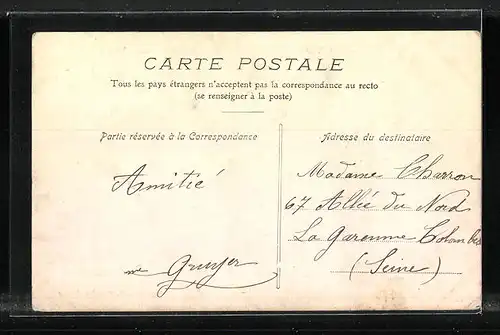 CARTE POSTALE
Tous les pays étrangers n'acceptent pas la correspondance au recto
(se renseigner à la poste)
Partie réservée à la Correspondance
Adresse du destinataire
Amitié
Madame Charron
67 Allée du Nord
La Garenne Colombes
(Seine)
me Gruyer